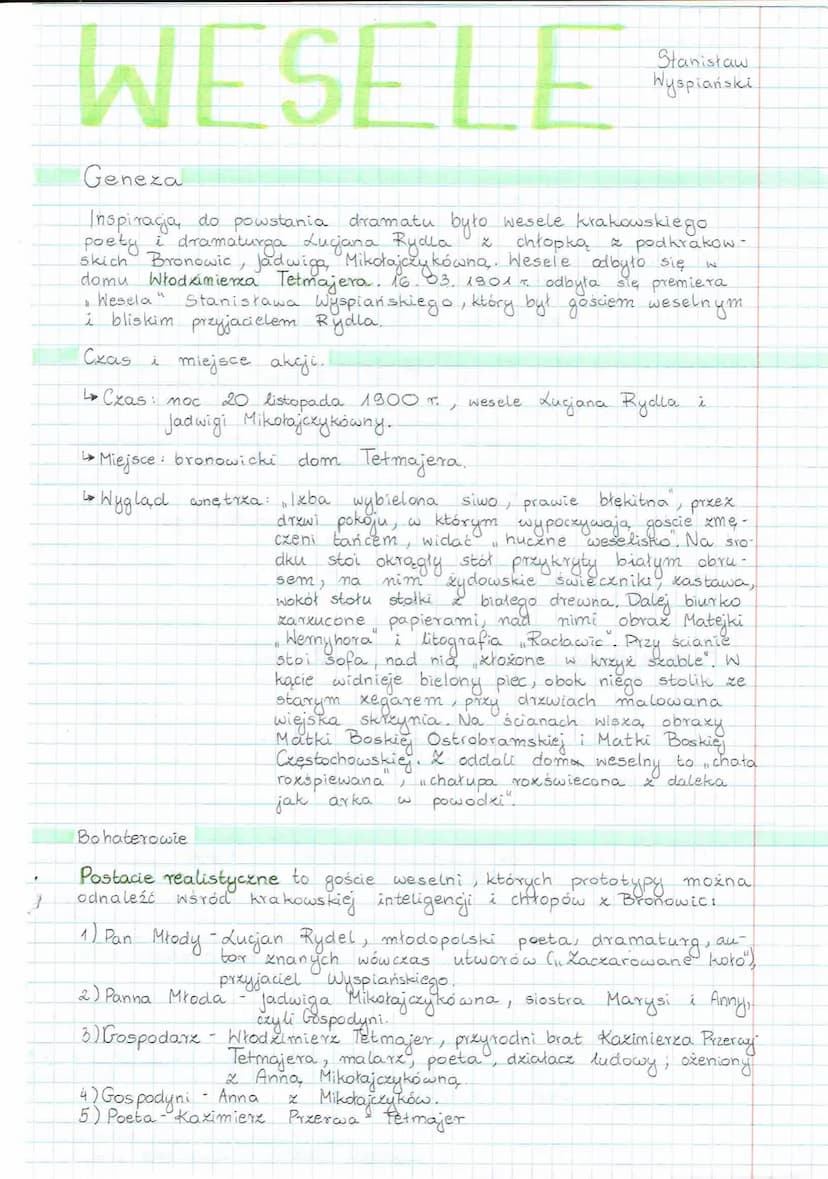 WESELE
Stanisław
Wyspiański
Geneza
Inspiracją do powstania dramatu było wesele krakowskiego
poety i dramaturga Lucjana Rydla z chłopką z podkrakow-
skich Bronowic, Jadwigą Mikołajczykówną. Wesele odbyło się w
domu Włodzimierza Tetmajera. 16.03.1901 r. odbyła się premiera
„Wesela" Stanisława Wyspiańskiego, który był gościem weselnym
i bliskim przyjacielem Rydla.
Czas i miejsce akcji.
↳ Czas: noc 20 listopada 1900 r., wesele Lucjana Rydla i
Jadwigi Mikołajczykówny.
↳ Miejsce: bronowicki dom Tetmajera.
↳ Wygląd wnętrza: „Izba wybielona siwo, prawie błękitna", przez
drzwi pokoju, w którym wypoczywają goście zmę-
czeni tańcem, widać „huczne weselisko". Na śro-
dku stoi okrągły stół przykryty białym obru-
sem, na nim żydowskie świeczniki, zastawa,
wokół stołu stołki z białego drewna. Dalej biurko
zarzucone papierami, nad nimi obraz Matejki
„Wernyhora" i litografia „Racławic". Przy ścianie
stoi sofa, nad nią „złożone w krzyż szable". W
kącie widnieje bielony piec, obok niego stolik ze
starym zegarem, przy drzwiach malowana
wiejska skrzynia. Na ścianach wiszą obrazy
Matki Boskiej Ostrobramskiej i Matki Boskiej
Częstochowskiej. Z oddali dom weselny to „chata
rozśpiewana", „chałupa rozświecona z daleka
jak arka w powodzi".
Bohaterowie
Postacie realistyczne to goście weselni, których prototypy można
odnaleźć wśród krakowskiej inteligencji i chłopów z Bronowic:
1) Pan Młody - Lucjan Rydel, młodopolski poeta, dramaturg, au-
tor znanych wówczas utworów („Zaczarowane koło"),
przyjaciel Wyspiańskiego.
2) Panna Młoda - Jadwiga Mikołajczykówna, siostra Marysi i Anny,
czyli Gospodyni.
3) Gospodarz - Włodzimierz Tetmajer, przyrodni brat Kazimierza Przerwy-
Tetmajera, malarz, poeta, działacz ludowy; ożeniony
z Anną Mikołajczykówną.
4) Gospodyni - Anna z Mikołajczyków.
5) Poeta - Kazimierz Przerwa - Tetmajer